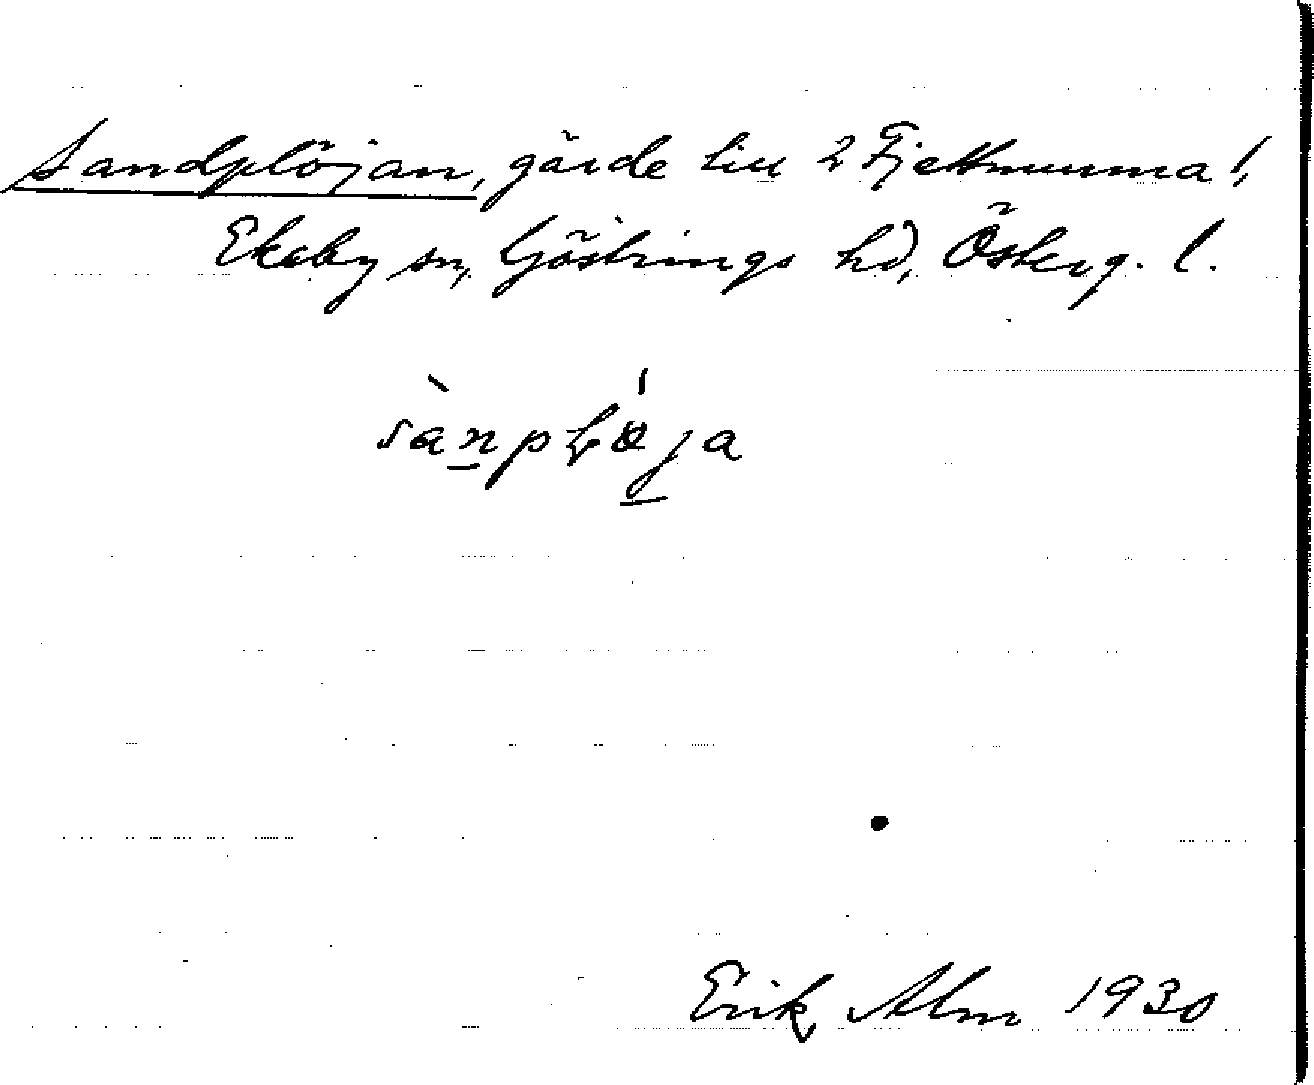 Sandplöjan, gärde till 2 Fjettmunna!,
Ekeby sn, Göstrings hd, Österg. l.
sànpḷö́ja
Erik Alm 1930